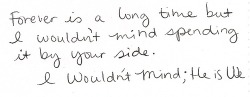 Forever is a long time but
I wouldn't mind spending
it by your side.
I Wouldn't Mind; He is We